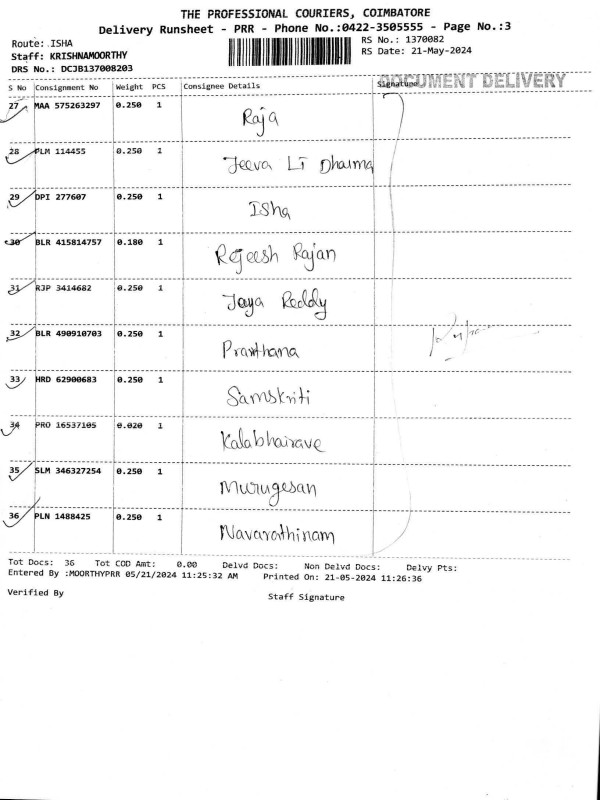 THE PROFESSIONAL COURIERS, COIMBATORE
Delivery Runsheet - PRR - Phone No.:0422-3505555 - Page No.:3
Route: ISHA RS No.: 1370082
Staff: KRISHNAMOORTHY RS Date: 21-May-2024
DRS No.: DCJB137008203
DOCUMENT DELIVERY
S No Consignment No Weight PCS Consignee Details Signature
27 MAA 575263297 0.250 1 Raja
28 PLM 114455 0.250 1 Jeeva Li Dharma
29 DPI 277607 0.250 1 Isha
30 BLR 415814757 0.180 1 Rejeesh Rajan
31 RJP 3414682 0.250 1 Jaya Reddy
32 BLR 490910703 0.250 1 Prarthana
33 HRD 62900683 0.250 1 Samskriti
34 PRO 16537105 0.020 1 Kalabhairave
35 SLM 346327254 0.250 1 Murugesan
36 PLN 1488425 0.250 1 Navarathinam
Tot Docs: 36 Tot COD Amt: 0.00 Delvd Docs: Non Delvd Docs: Delvy Pts:
Entered By :MOORTHYPRR 05/21/2024 11:25:32 AM Printed On: 21-05-2024 11:26:36
Verified By Staff Signature